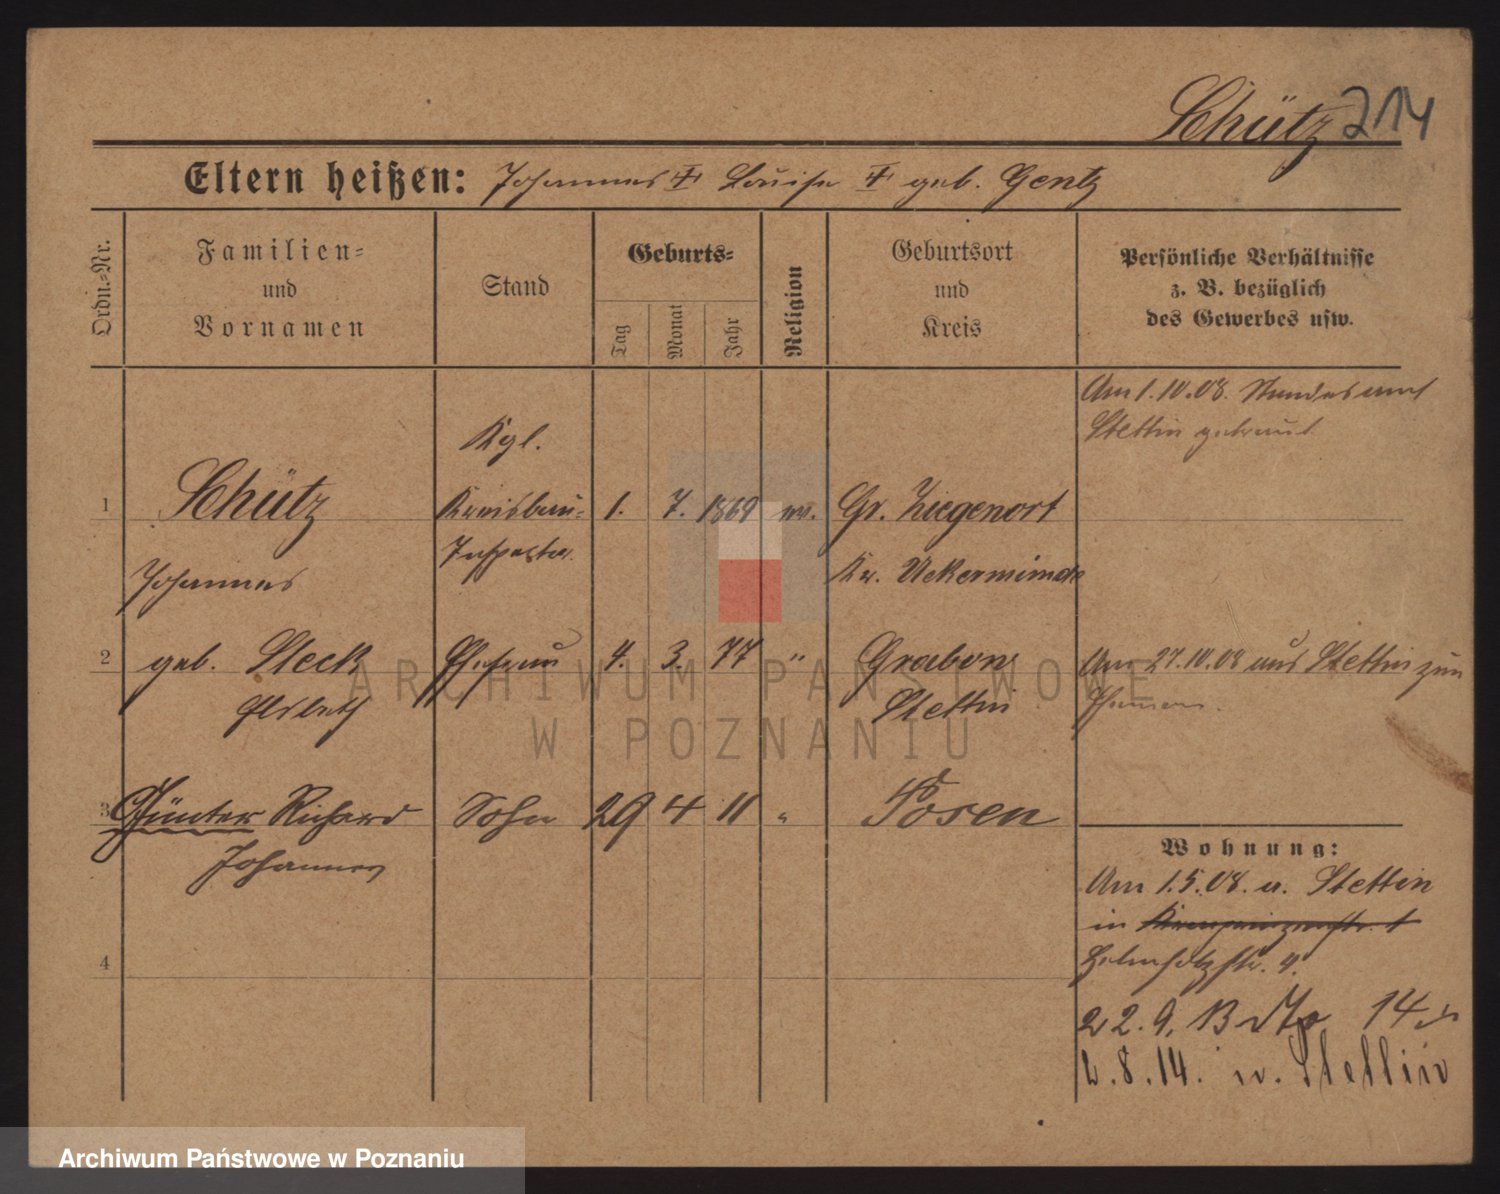 Schütz 214
Eltern heißen: Johannes ⚔ Louise ⚔ geb. Gentz
Ordn.-Nr.
Familien-
und
Vornamen
Stand
Geburts-
Tag
Monat
Jahr
Religion
Geburtsort
und
Kreis
Persönliche Verhältnisse
z. B. bezüglich
des Gewerbes usw.
Am 1.10.08. Standesamt
Stettin getraut
Kgl.
1 Schütz Kreisbau- 1. 7. 1869 ev. Gr. Ziegenort
Johannes Inspektor. Kr. Uekermünde
2 geb. Steck Ehefrau 4. 3. 77 " Grabow Am 27.10.08 aus Stettin zum
Elsbeth Stettin
3 Günter Richard Sohn 29 4 11 " Posen
Johannes
Wohnung:
Am 1.5.08. a. Stettin
in Kronprinzenstr. 1
4
22.9.13 14
2.8.14. n. Stettin
ARCHIWUM PAŃSTWOWE
W POZNANIU
Archiwum Państwowe w Poznaniu